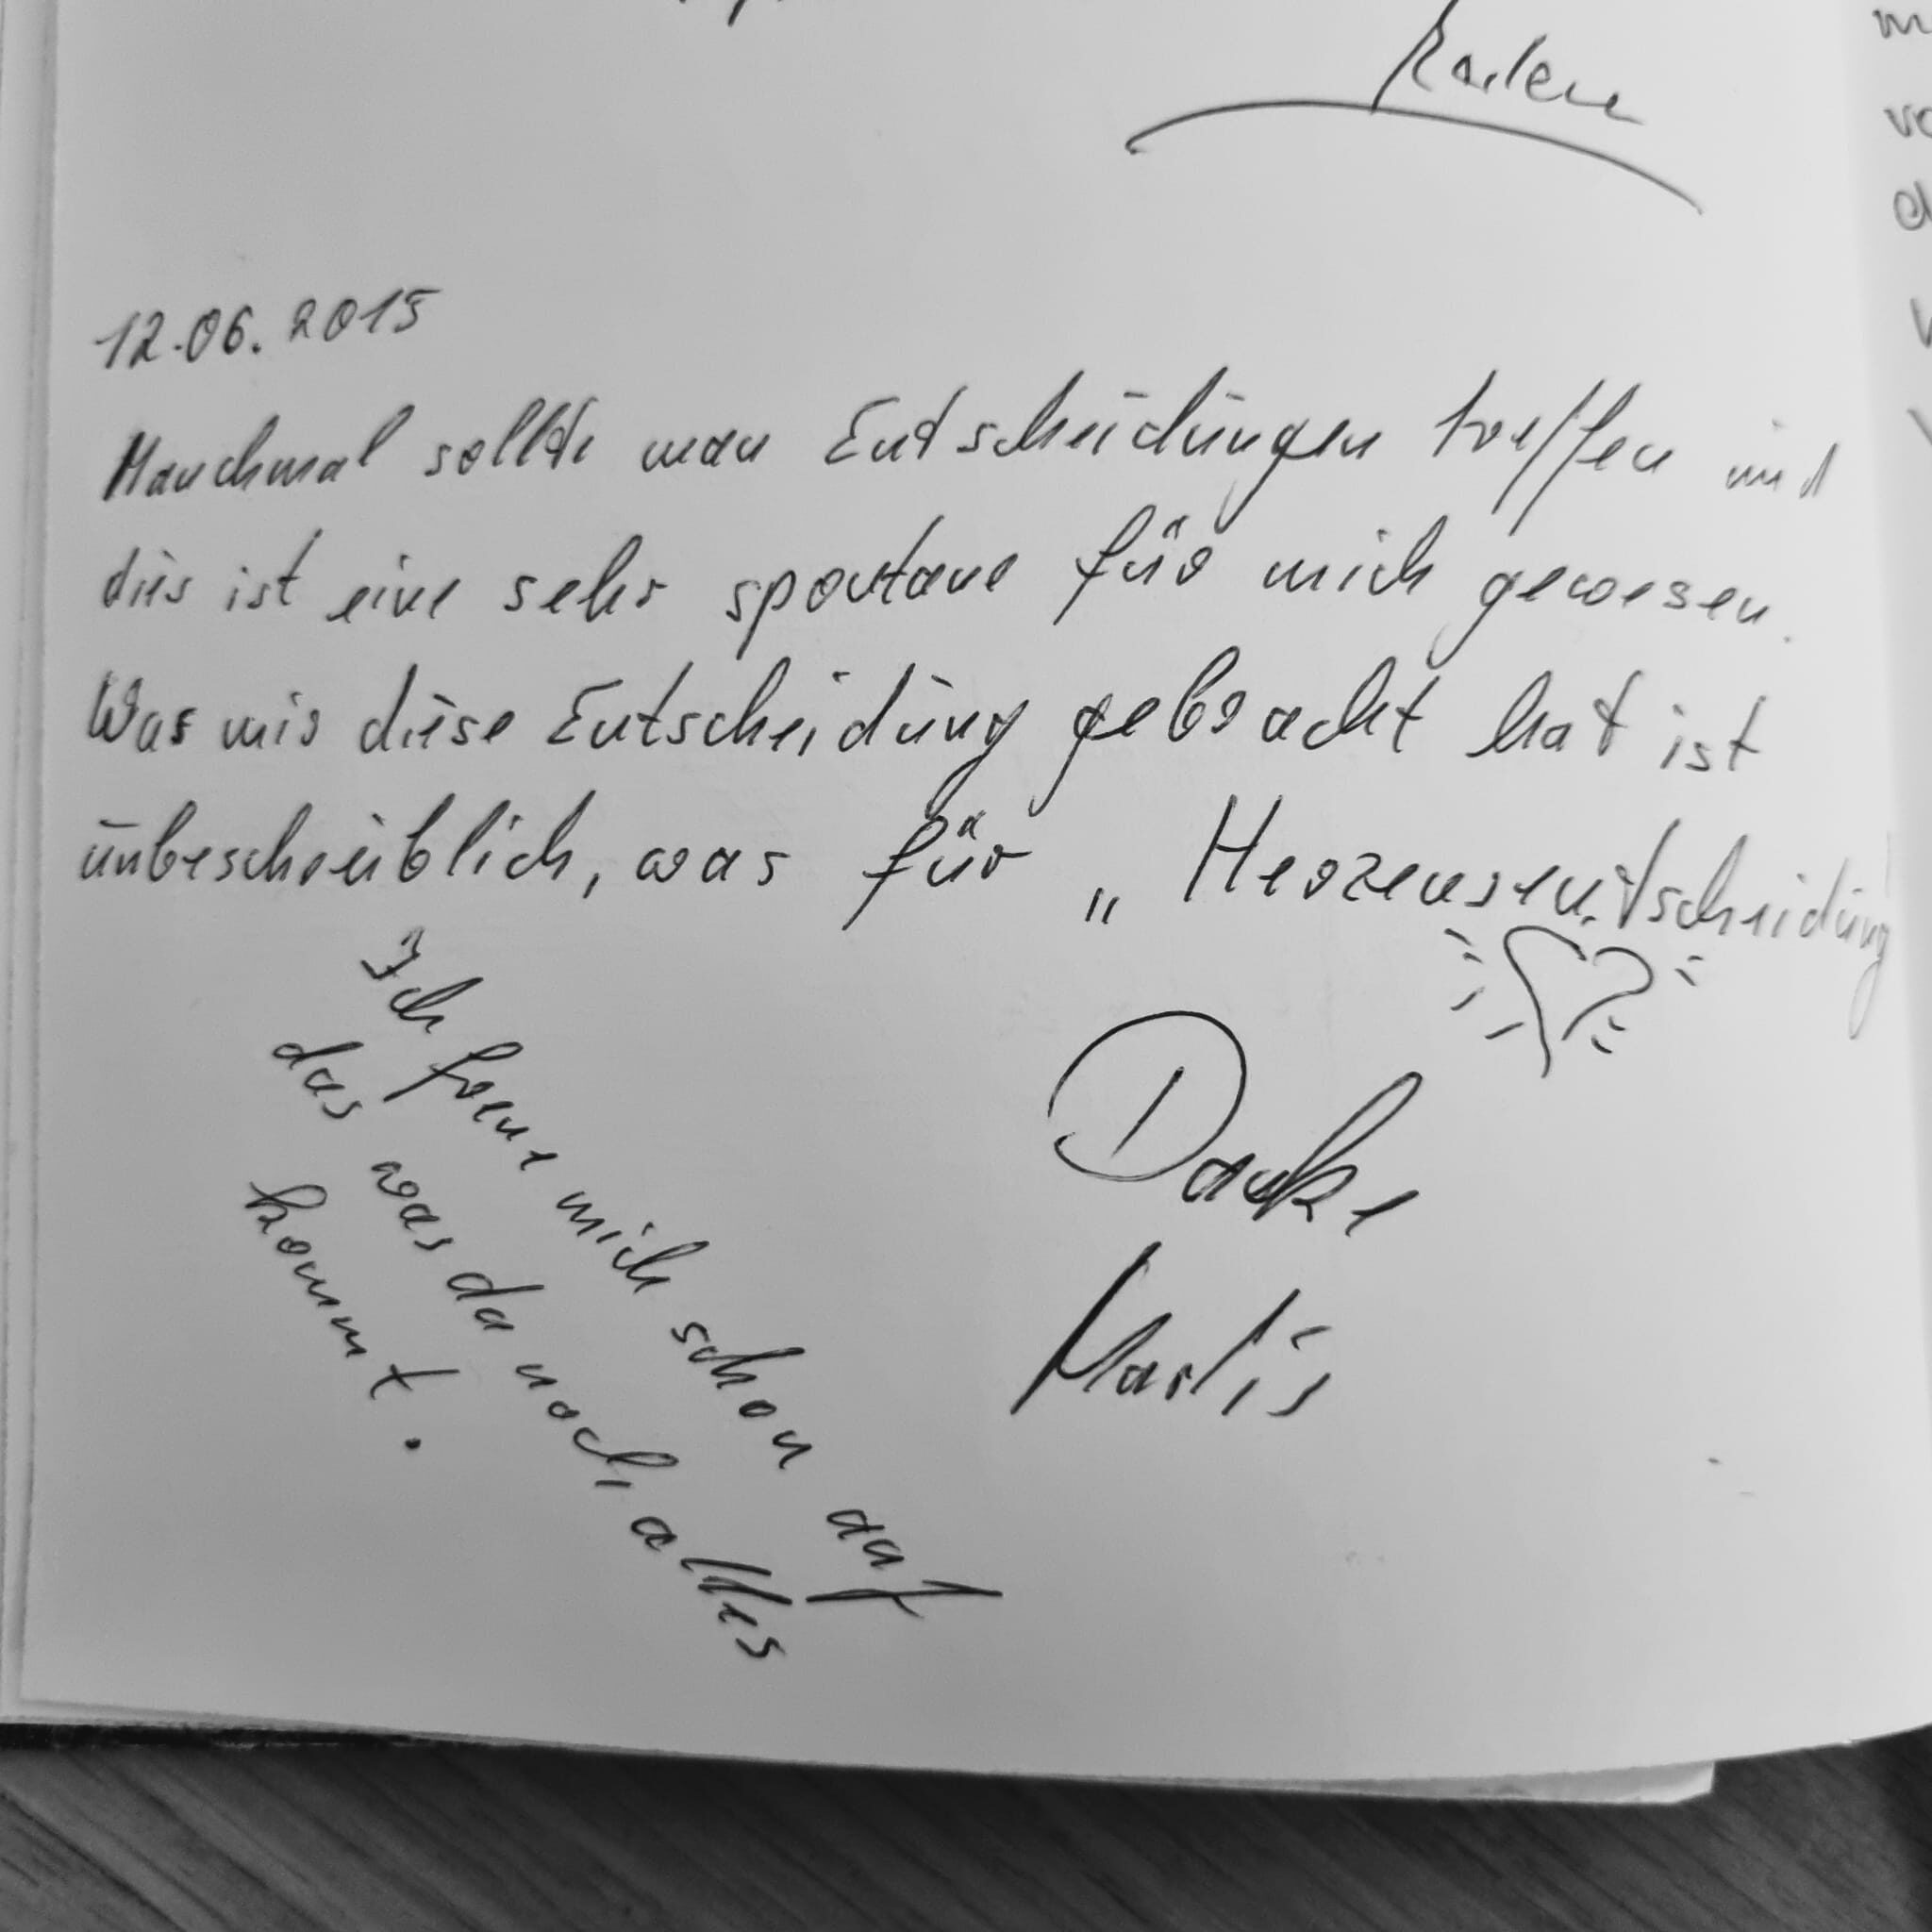 12.06.2015
Manchmal sollte man Entscheidungen treffen und
dies ist eine sehr spontane für mich gewesen.
Was mir diese Entscheidung gebracht hat ist
unbeschreiblich, was für „Herzensentscheidung!
Danke
Marlis
Ich freue mich schon auf
das was da noch alles
kommt.